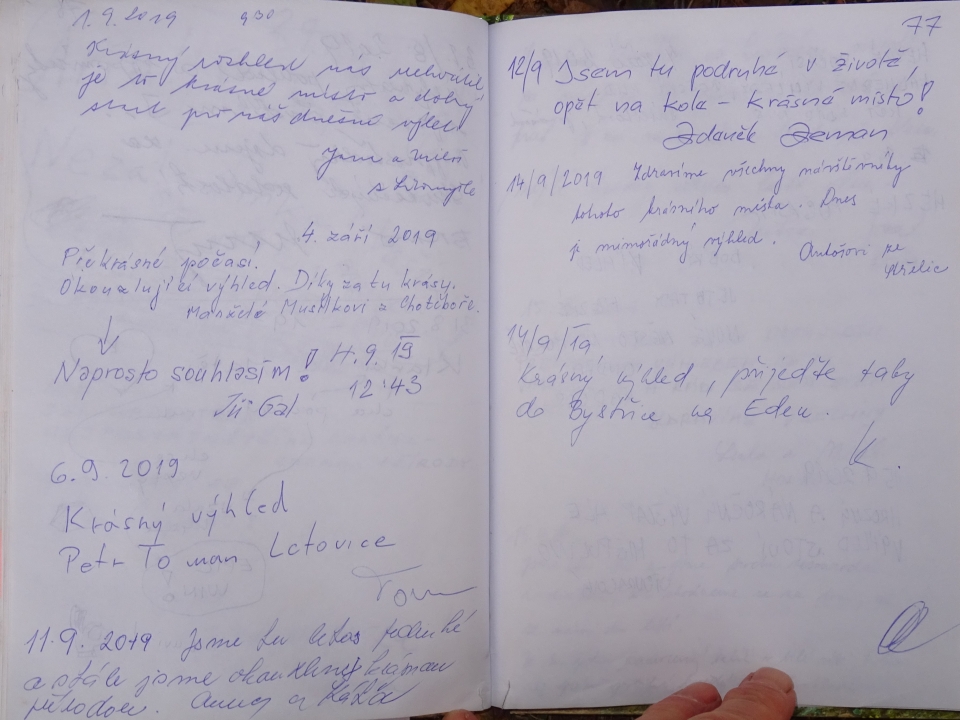 1.9.2019 9³⁰
Krásný rozhled nás
je to krásné místo a dobrý
start pro náš dnešní výlet
Jana a
z Litomyšle
4. září 2019
Překrásné počasí.
Okouzlující výhled. Díky za tu krásy.
Manželé Musílkovi z Chotěboře.
Naprosto souhlasím! 4.9.19
12:43
Jiří Gal
6.9.2019
Krásný výhled
Petr Toman Letovice
Tom
11.9.2019 Jsme tu letos podruhé
a stále jsme okouzleny krásnou
přírodou. a Káťa
77
12/9 Jsem tu podruhé v životě,
opět na kole - krásná místo!
Zdeněk Zeman
14/9/2019 Zdravíme všechny návštěvníky
tohoto krásného místa. Dnes
je mimořádný výhled.
14/9/19,
Krásný výhled, přijeďte taky
do Bystřice na Eden.
K.